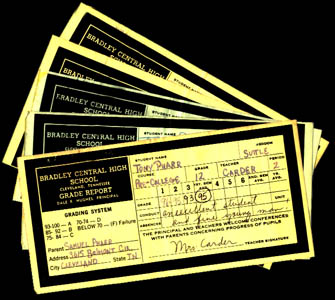 BRADLEY CENTRAL HIGH
BRADLEY CENTRAL HIGH
BRADLEY CENTRAL HIGH
BRADLEY CENTRAL HIGH
SCHOOL
CLEVELAND, TENNESSEE
GRADE REPORT
DALE R. HUGHES, PRINCIPAL
GRADING SYSTEM
93-100 — A 70-74 — D
85- 92 — B BELOW 70 — (F) Failure
75- 84 — C
Parent SAMUEL PHARR
Address 3615 BELMONT CIR.
City CLEVELAND State TN
STUDENT NAME
TONY PHARR
ADVISOR
SUTTLE
PRE-COLLEGE
GRADE
12
TEACHER
CARDER
PERIOD
2
1 2 3
4 5 6
93 95
an excellent student
and fine young man
THE PRINCIPAL AND TEACHERS WELCOME CONFERENCES
WITH PARENTS CONCERNING PROGRESS OF PUPILS
Mrs Carder
TEACHER SIGNATURE